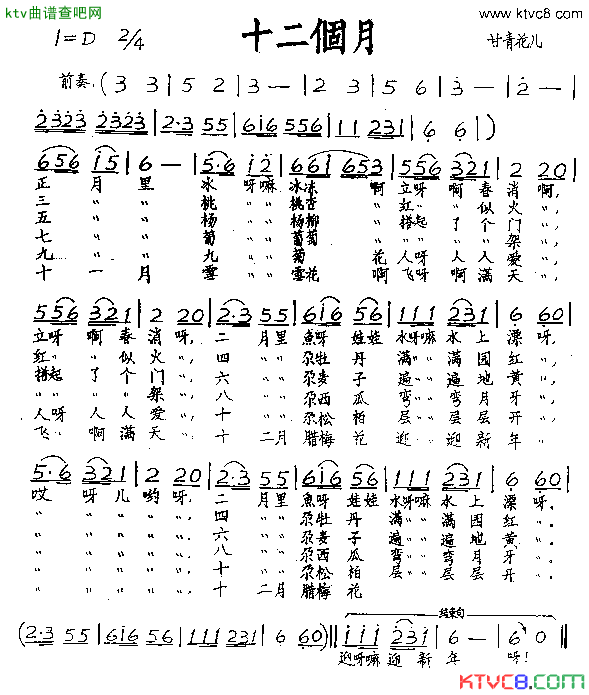 ktv曲谱查吧网
www.ktvc8.com
1=D 2/4
十二個月
甘青花儿
前奏:(3 3|5 2|3 —|2 3|5 6|3 —|2 —|
2323 2323|2·3 55|616 556|111 231|6 6)
656 15|6 —|5·6 12|661 653|111 556|321|2 20|
正 月 里 冰 呀嘛 冰冻 啊 立呀 啊 春 消 啊,
三 〃 〃 桃 〃 桃杏 〃 红〃 〃 似 火 〃,
五 〃 〃 杨 〃 杨柳 〃 搭起 了 个 门 〃,
七 〃 〃 葡 〃 葡萄 〃 〃 〃 〃 架 〃,
九 〃 〃 九 〃 菊 花 人呀 人 人 爱 〃,
十 一 月 雪 〃 雪花 啊 飞呀 啊 满 天 〃,
556 321|2 20|2·3 55|616 56|111 231|6 60|
立呀 啊 春 消 呀, 二 月里 魚呀 娃娃 水呀嘛 水 上 漂 呀,
红〃 〃 似 火 〃, 四 〃〃 尕牡 丹 满〃 满 园 红 〃,
搭起 了 个 门 〃, 六 〃〃 尕麦 子 遍〃 遍 地 黄 〃,
〃 〃 〃 架 〃, 八 〃〃 尕西 瓜 弯〃 弯 月 牙 〃,
人呀 人 人 爱 〃, 十 〃〃 尕松 柏 层〃 层 层 开 〃,
飞〃 啊 满 天 〃, 十 二月 腊梅 花 迎〃 迎 新 年 〃,
5·6 321|2 20|2·3 55|616 56|111 231|6 60|
哎 呀 儿 哟 呀, 二 月里 魚呀 娃娃 水呀嘛 水 上 漂 呀.
〃 〃 〃 〃 〃 四 〃〃 尕牡 丹 满〃 满 园 红 〃.
〃 〃 〃 〃 〃 六 〃〃 尕麦 子 遍〃 遍 地 黄 〃.
〃 〃 〃 〃 〃 八 〃〃 尕西 瓜 弯〃 弯 月 牙 〃.
〃 〃 〃 〃 〃 十 〃〃 尕松 柏 层〃 层 层 开 〃.
〃 〃 〃 〃 〃 十 二月 腊梅 花
结束句
(2·3 55|616 56|111 231|6 60)‖111 231|6 —|6 0‖
迎呀嘛 迎 新 年 呀!
KTVC8.com